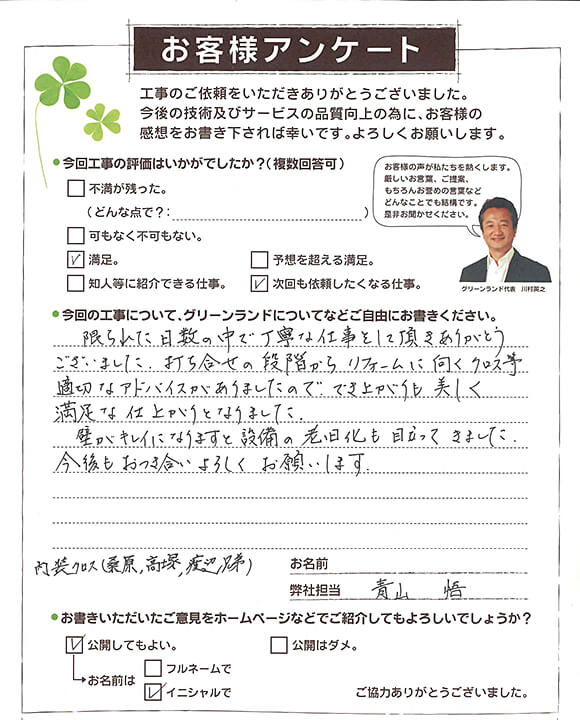 お客様アンケート
工事のご依頼をいただきありがとうございました。
今後の技術及びサービスの品質向上の為に、お客様の
感想をお書き下されば幸いです。よろしくお願いします。
●今回工事の評価はいかがでしたか?(複数回答可)
不満が残った。
(どんな点で?: )
可もなく不可もない。
満足。
予想を超える満足。
知人等に紹介できる仕事。
次回も依頼したくなる仕事。
お客様の声が私たちを熱くします。
厳しいお言葉、ご提案、
もちろんお誉めの言葉など
どんなことでも結構です。
是非お聞かせください。
グリーンランド代表 川村英之
●今回の工事について、グリーンランドについてなどご自由にお書きください。
限られた日数の中で丁寧な仕事をして頂きありがとう
ございました. 打ち合せの段階から リフォームに向くクロス等
適切なアドバイスがありましたので でき上がりも 美しく
満足な仕上がりとなりました.
壁がキレイになりますと設備の老旧化も目立ってきました.
今後もおつき合いよろしく お願いします.
内装クロス(桑原,高塚,渡辺兄弟)
お名前
弊社担当 青山 悟
●お書きいただいたご意見をホームページなどでご紹介してもよろしいでしょうか?
公開してもよい。
公開はダメ。
お名前は
フルネームで
イニシャルで
ご協力ありがとうございました。